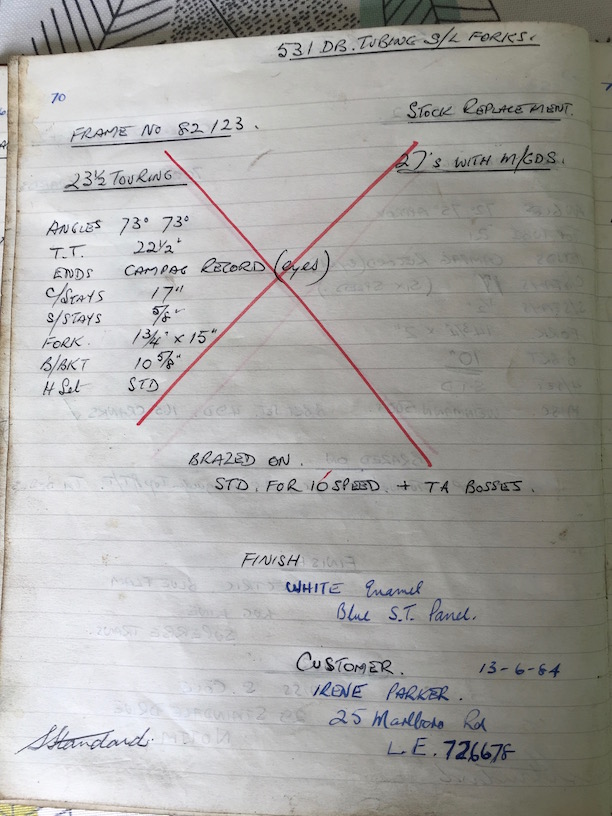 531 DB. TUBING S/L FORKS.
70
STOCK REPLACEMENT.
FRAME NO 82123.
27's WITH M/GDS.
23½ TOURING
ANGLES 73° 73°
T.T. 22½"
ENDS CAMPAG RECORD (eyes)
C/STAYS 17"
S/STAYS 5/8"
FORK. 1¾" x 15"
B/BKT 10 5/8"
H Set STD
BRAZED ON.
STD. FOR 10 SPEED. + TA BOSSES.
FINISH
WHITE Enamel
Blue S.T. Panel.
CUSTOMER. 13-6-84
IRENE PARKER.
25 Marlboro Rd
L.E. 726678